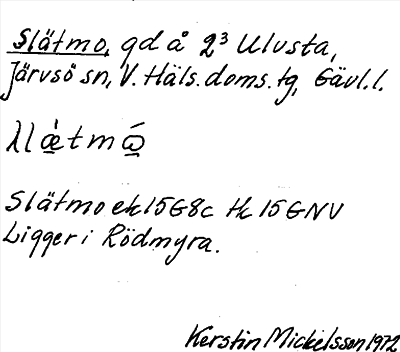 Slätmo, gd å 2³ Ulvsta,
Järvsö sn, V. Häls. doms. tg, Gävl.l.
Slätmo ek 15G8c tk 15GNV
Ligger i Rödmyra.
Kerstin Mickelsson 1972